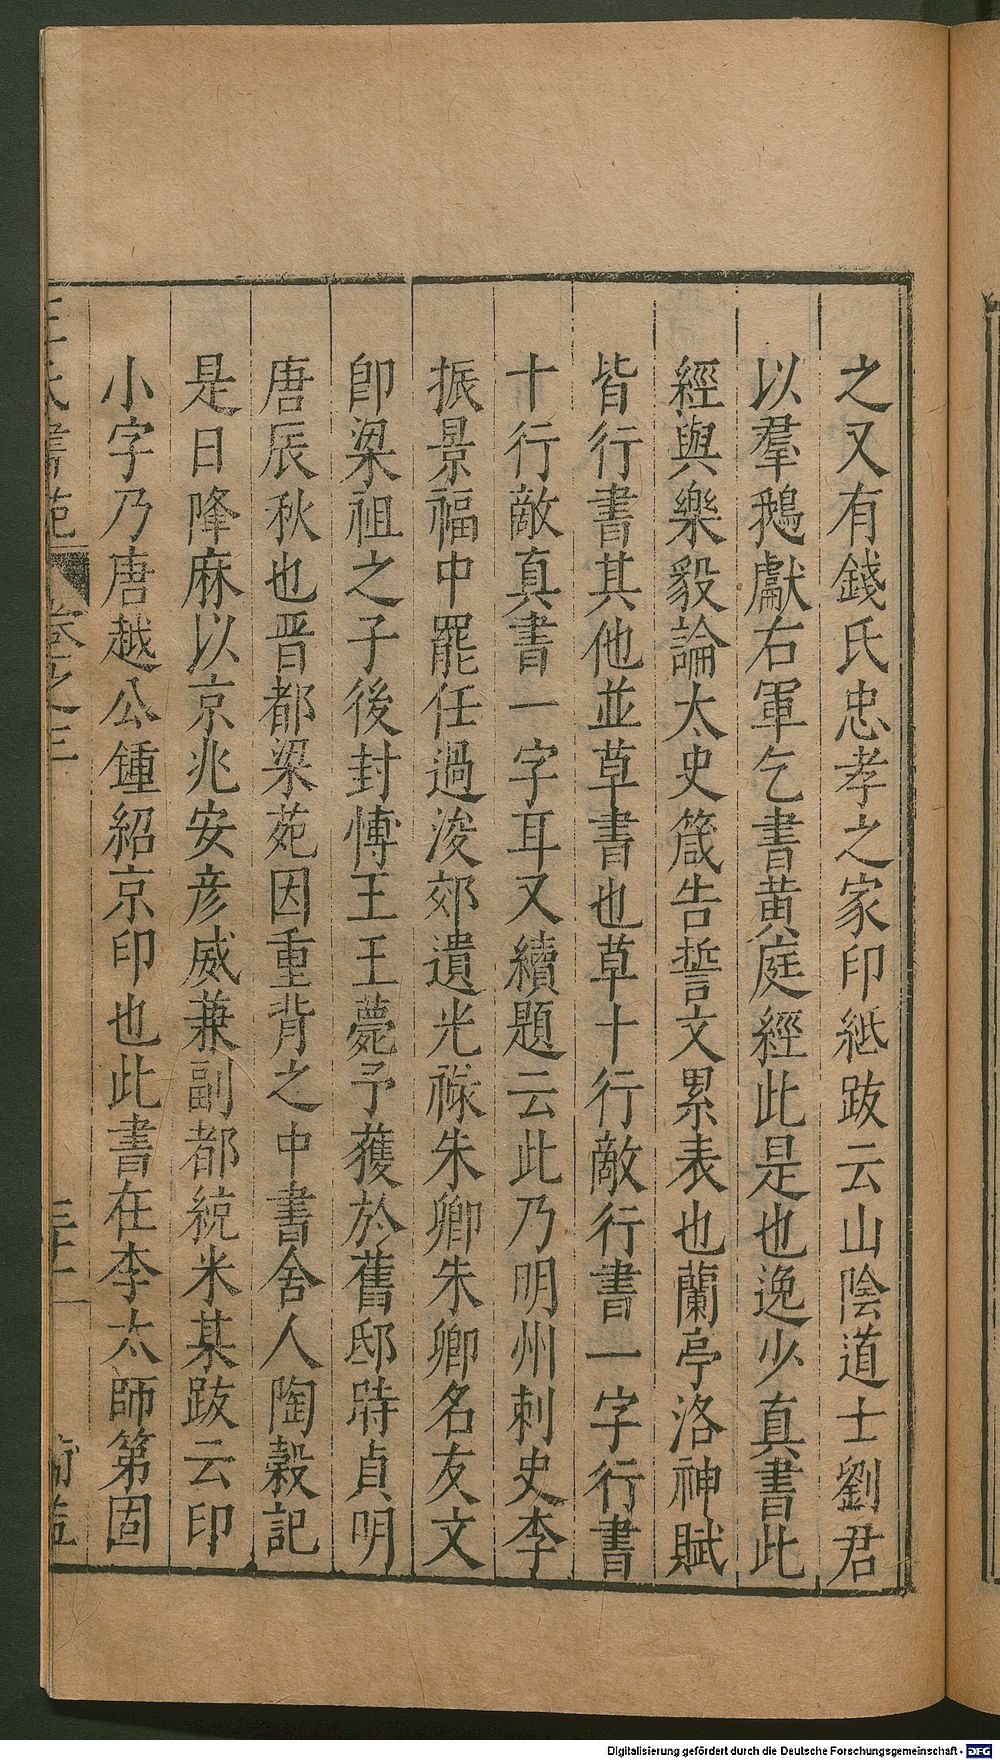 之又有錢氏忠孝之家印紙跋云山陰道士劉君
以羣鵝獻右軍乞書黄庭經此是也逸少真書此
經與樂毅論太史箴告誓文累表也蘭亭洛神賦
皆行書其他並草書也草十行敵行書一字行書
十行敵真書一字耳又續題云此乃明州刺史李
振景福中罷任過浚郊遺光祿朱卿朱卿名友文
卽梁祖之子後封博王王薨予獲於舊邸時貞明
唐辰秋也晋都梁苑因重背之中書舍人陶穀記
是日降麻以京兆安彦威兼副都統米某跋云印
小字乃唐越公鍾紹京印也此書在李太師第固
王氏書苑
卷之三
三十一
Digitalisierung gefördert durch die Deutsche Forschungsgemeinschaft - DFG